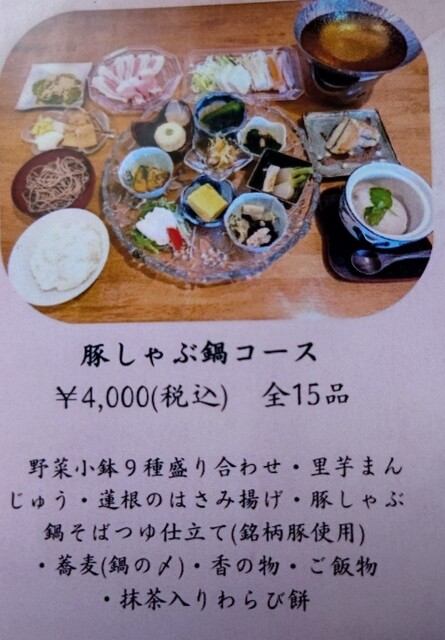 豚しゃぶ鍋コース
￥4,000(税込)　全15品
野菜小鉢９種盛り合わせ・里芋まん
じゅう・蓮根のはさみ揚げ・豚しゃぶ
鍋そばつゆ仕立て(銘柄豚使用)
・蕎麦(鍋の〆)・香の物・ご飯物
・抹茶入りわらび餅